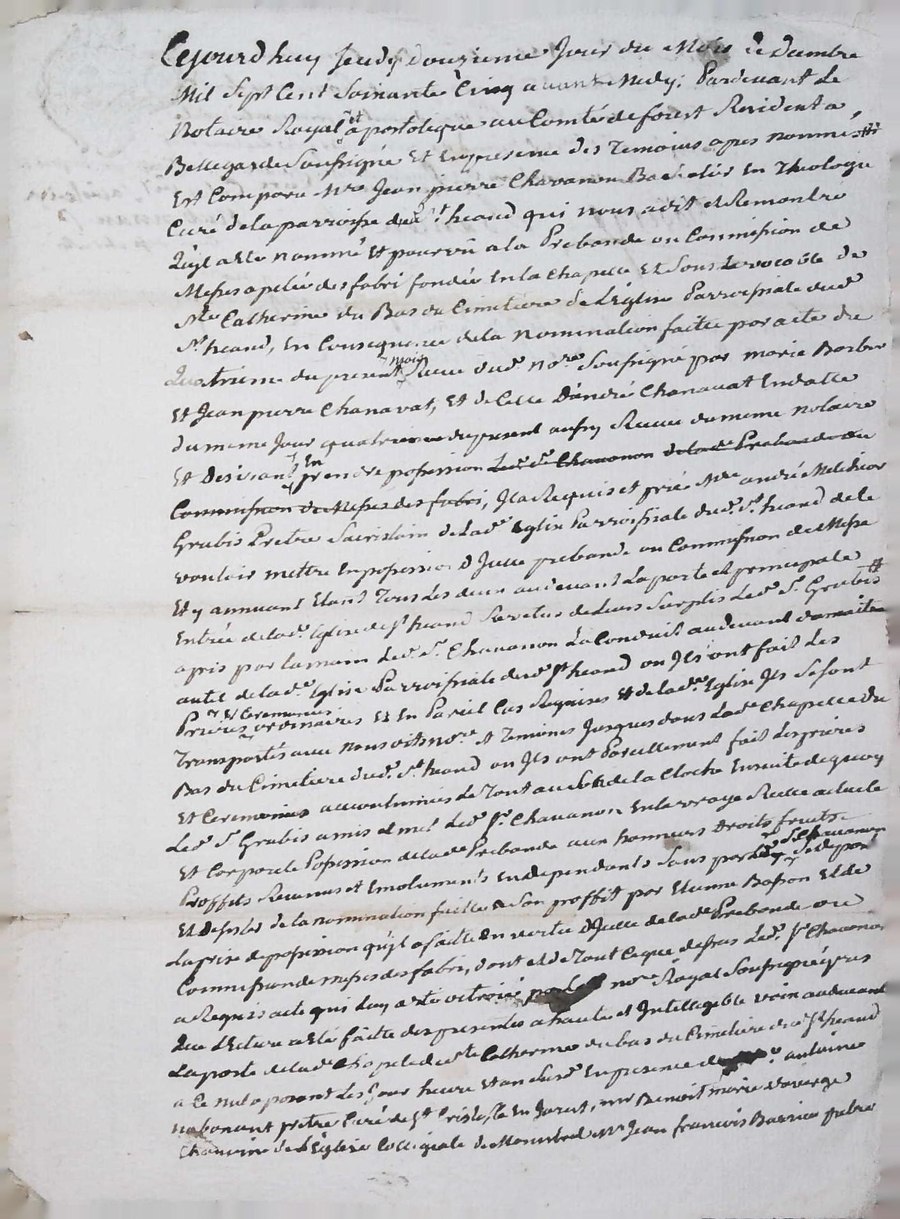 Cejourdhuy jeudy douzieme Jour du Mois de Dambre
Mil Sept Cent Soixante Cinq avant Midy; Pardevant Le
Notaire Royal et apostolique au Comté de forest Resident a
Bellegarde Soussigné Et En presence des Temoins apres nommés
Est Comparu Mre Jean pierre Chavanon Bachelier En Theologie
Curé de la parroisse de St heand qui nous a dit et Remontré
Quyl a Eté nommé Et pourvû a la Prebande ou Commission de
Messes apellée des fabri fondée En la Chapelle Et Sous Le vocable de
Ste Catherine du Bas du Cimetiere de L'Eglise Parroissiale dud.
St heand, En Consequence de la nomination faitte par acte du
Quatrieme du present mois Receu dud. Nore Soussigné par marie Barbier
Et Jean pierre Chanavat, Et de Celle D'andré Chanavat En datte
du meme Jour quatrieme du present aussy Receu du meme notaire
Et Desirant En prendre possession Led. Sr. Chavanon de lad. Prebande ou
Commission de Messes des fabri, Il a Requis et prié Mre andré Melchior
Grubis Pretre Sacristain de Lad. Eglise Parroissiale dud. St heand de le
vouloir mettre En possession D'Icelle prebande ou Commission de Messe
Et y annuant Etant Tous Les deux au devant La porte et principale
Entrée de lad. Eglise de St heand Revetus de Leurs Surplis Led. Sr. Grubis
a pris par la main Led. Sr. Chavanon La Conduit au devant du maitre
autel de lad. Eglise Parroissiale dud. St heand ou Ils ont fait Les
Prieres Et Ceremonies ordinaires Et En Pareil Cas Requises Et de lad. Eglise Ils Se sont
Transportés avec nousdits Nore Et Temoins Jusques dans Lad. Chapelle du
Bas du Cimetiere dud. St heand ou Ils ont Pareillement fait Les prieres
Et Ceremonies accoutumées Le Tout au Son de la Cloche Ensuite de quoy
Led. Sr. Grubis a mis et met Led. Sr. Chavanon En la vraye Reelle actuelle
Et Corporelle Possession de lad. Prebande aux honneurs Droits fruits
Proffits Revenus et Emoluments En dependants Sans par Led. Sr. Chavanon Se depor
Et Desister de la nomination faitte a Son proffit par Etienne Basson Et de
La prise de possession qu'yl a faitte En vertu D'Icelle de lad. Prebande ou
Commission de messes des fabri, dont et de Tout Ce que dessus Led. Sr. Chavanon
a Requis acte qui Luy a Eté octroié par Le Nore Royal Soussigné apres
Que Lecture a Eté faitte des presentes a haute et Intelligible voix au devant
La porte de lad. Chapelle de Ste Catherine du bas du Cimetiere de St heand
a Ce nul oposant Les Jour heure Et an dud. En presence de Mre antoine
nabonant pretre Curé de St Cristo, Mre Benoit marie
Chanoine de L'Eglise Collegiale de Montbrd. Mre Jean francois Barrieu pretre